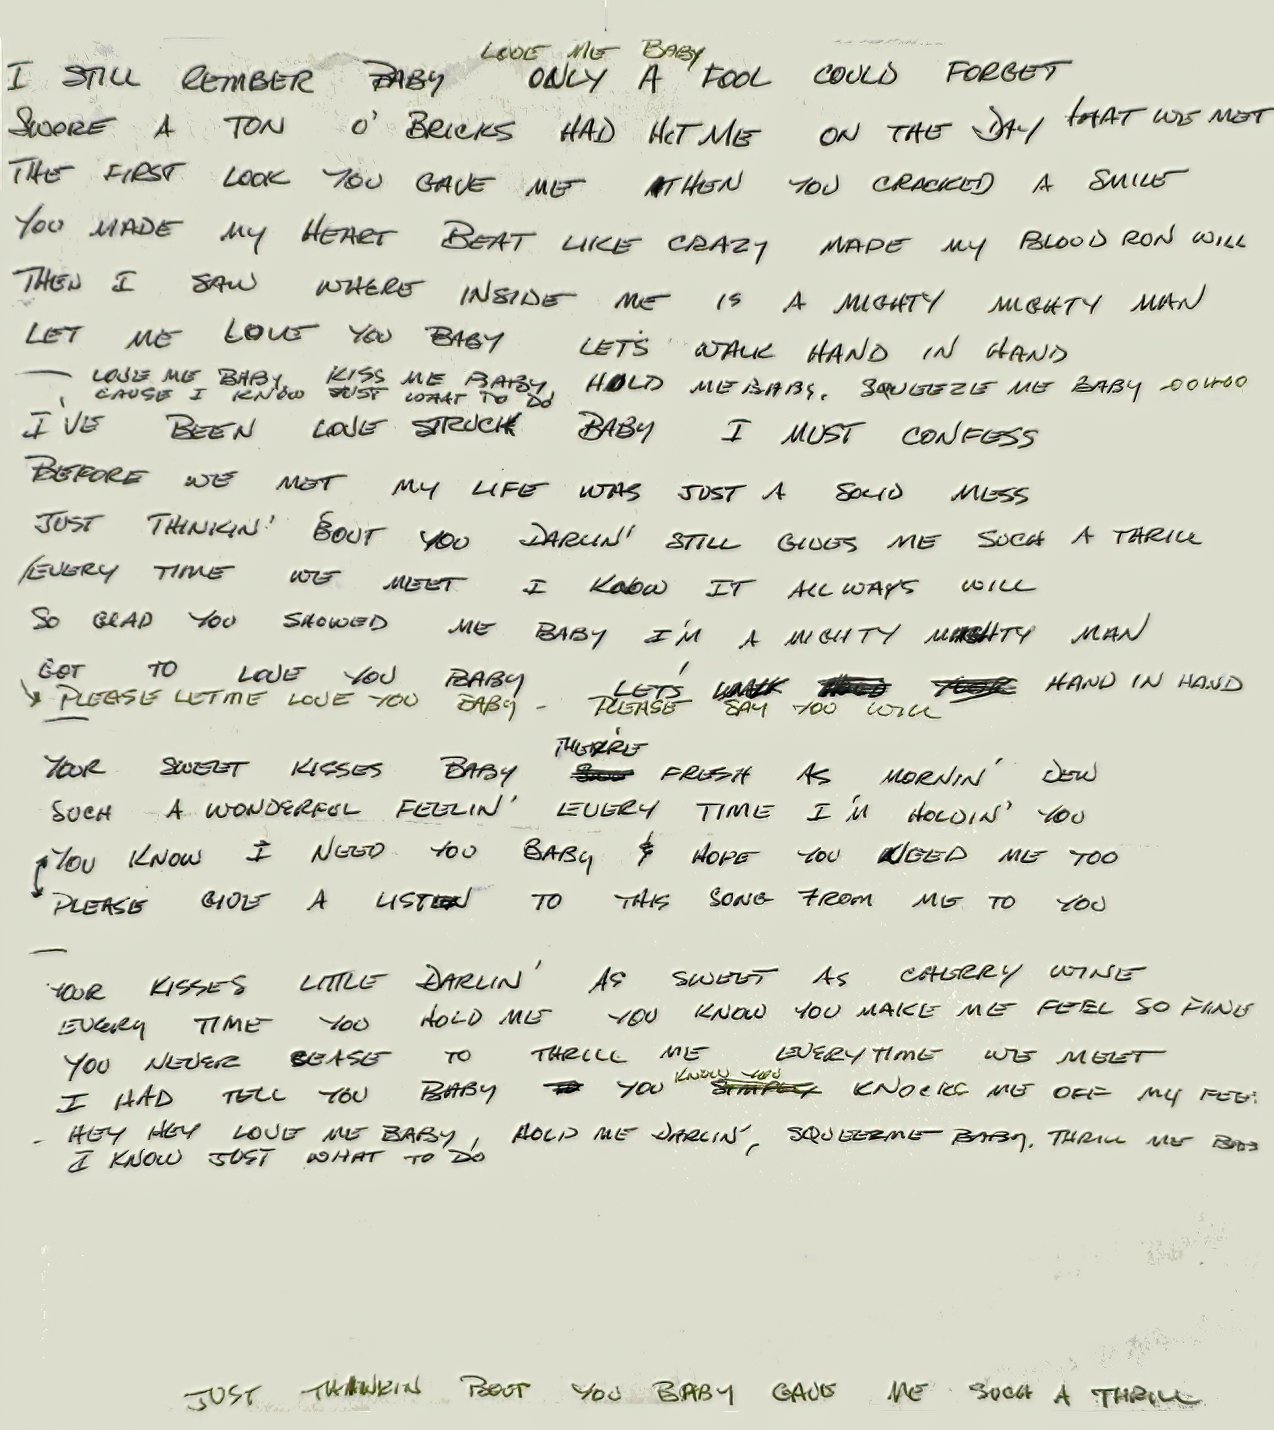 LOVE ME BABY
I STILL REMBER BABY ONLY A FOOL COULD FORGET
SWORE A TON O' BRICKS HAD HIT ME ON THE DAY THAT WE MET
THE FIRST LOOK YOU GAVE ME THEN YOU CRACKED A SMILE
YOU MADE MY HEART BEAT LIKE CRAZY MADE MY BLOOD RON WILL
THEN I SAW WHERE INSIDE ME IS A MIGHTY MIGHTY MAN
LET ME LOVE YOU BABY LET'S WALK HAND IN HAND
— LOVE ME BABY KISS ME BABY, HOLD ME BABY, SQUEEZE ME BABY OOHOO
CAUSE I KNOW JUST WHAT TO DO
I'VE BEEN LOVE STRUCK BABY I MUST CONFESS
BEFORE WE MET MY LIFE WAS JUST A SOLID MESS
JUST THINKIN' 'BOUT YOU DARLIN' STILL GIVES ME SUCH A THRILL
EVERY TIME WE MEET I KNOW IT ALLWAYS WILL
SO GLAD YOU SHOWED ME BABY I'M A MIGHTY MIGHTY MAN
GOT TO LOVE YOU BABY LET'S WALK HAND IN HAND
PLEASE LET ME LOVE YOU BABY - PLEASE SAY YOU WILL
—
THER'RE
YOUR SWEET KISSES BABY FRESH AS MORNIN' DEW
SUCH A WONDERFUL FEELIN' EVERY TIME I'M HOLDIN' YOU
YOU KNOW I NEED YOU BABY & HOPE YOU NEED ME TOO
PLEASE GIVE A LISTEN TO THIS SONG FROM ME TO YOU
—
YOUR KISSES LITTLE DARLIN' AS SWEET AS CHERRY WINE
EVERY TIME YOU HOLD ME YOU KNOW YOU MAKE ME FEEL SO FINE
YOU NEVER CEASE TO THRILL ME EVERYTIME WE MEET
KNOW YOU
I HAD TELL YOU BABY YOU SIMPLY KNOCKS ME OFF MY FEE
- HEY HEY LOVE ME BABY, HOLD ME DARLIN', SQUEEZE ME BABY, THRILL ME
I KNOW JUST WHAT TO DO
JUST THINKIN BOUT YOU BABY GAVE ME SUCH A THRILL